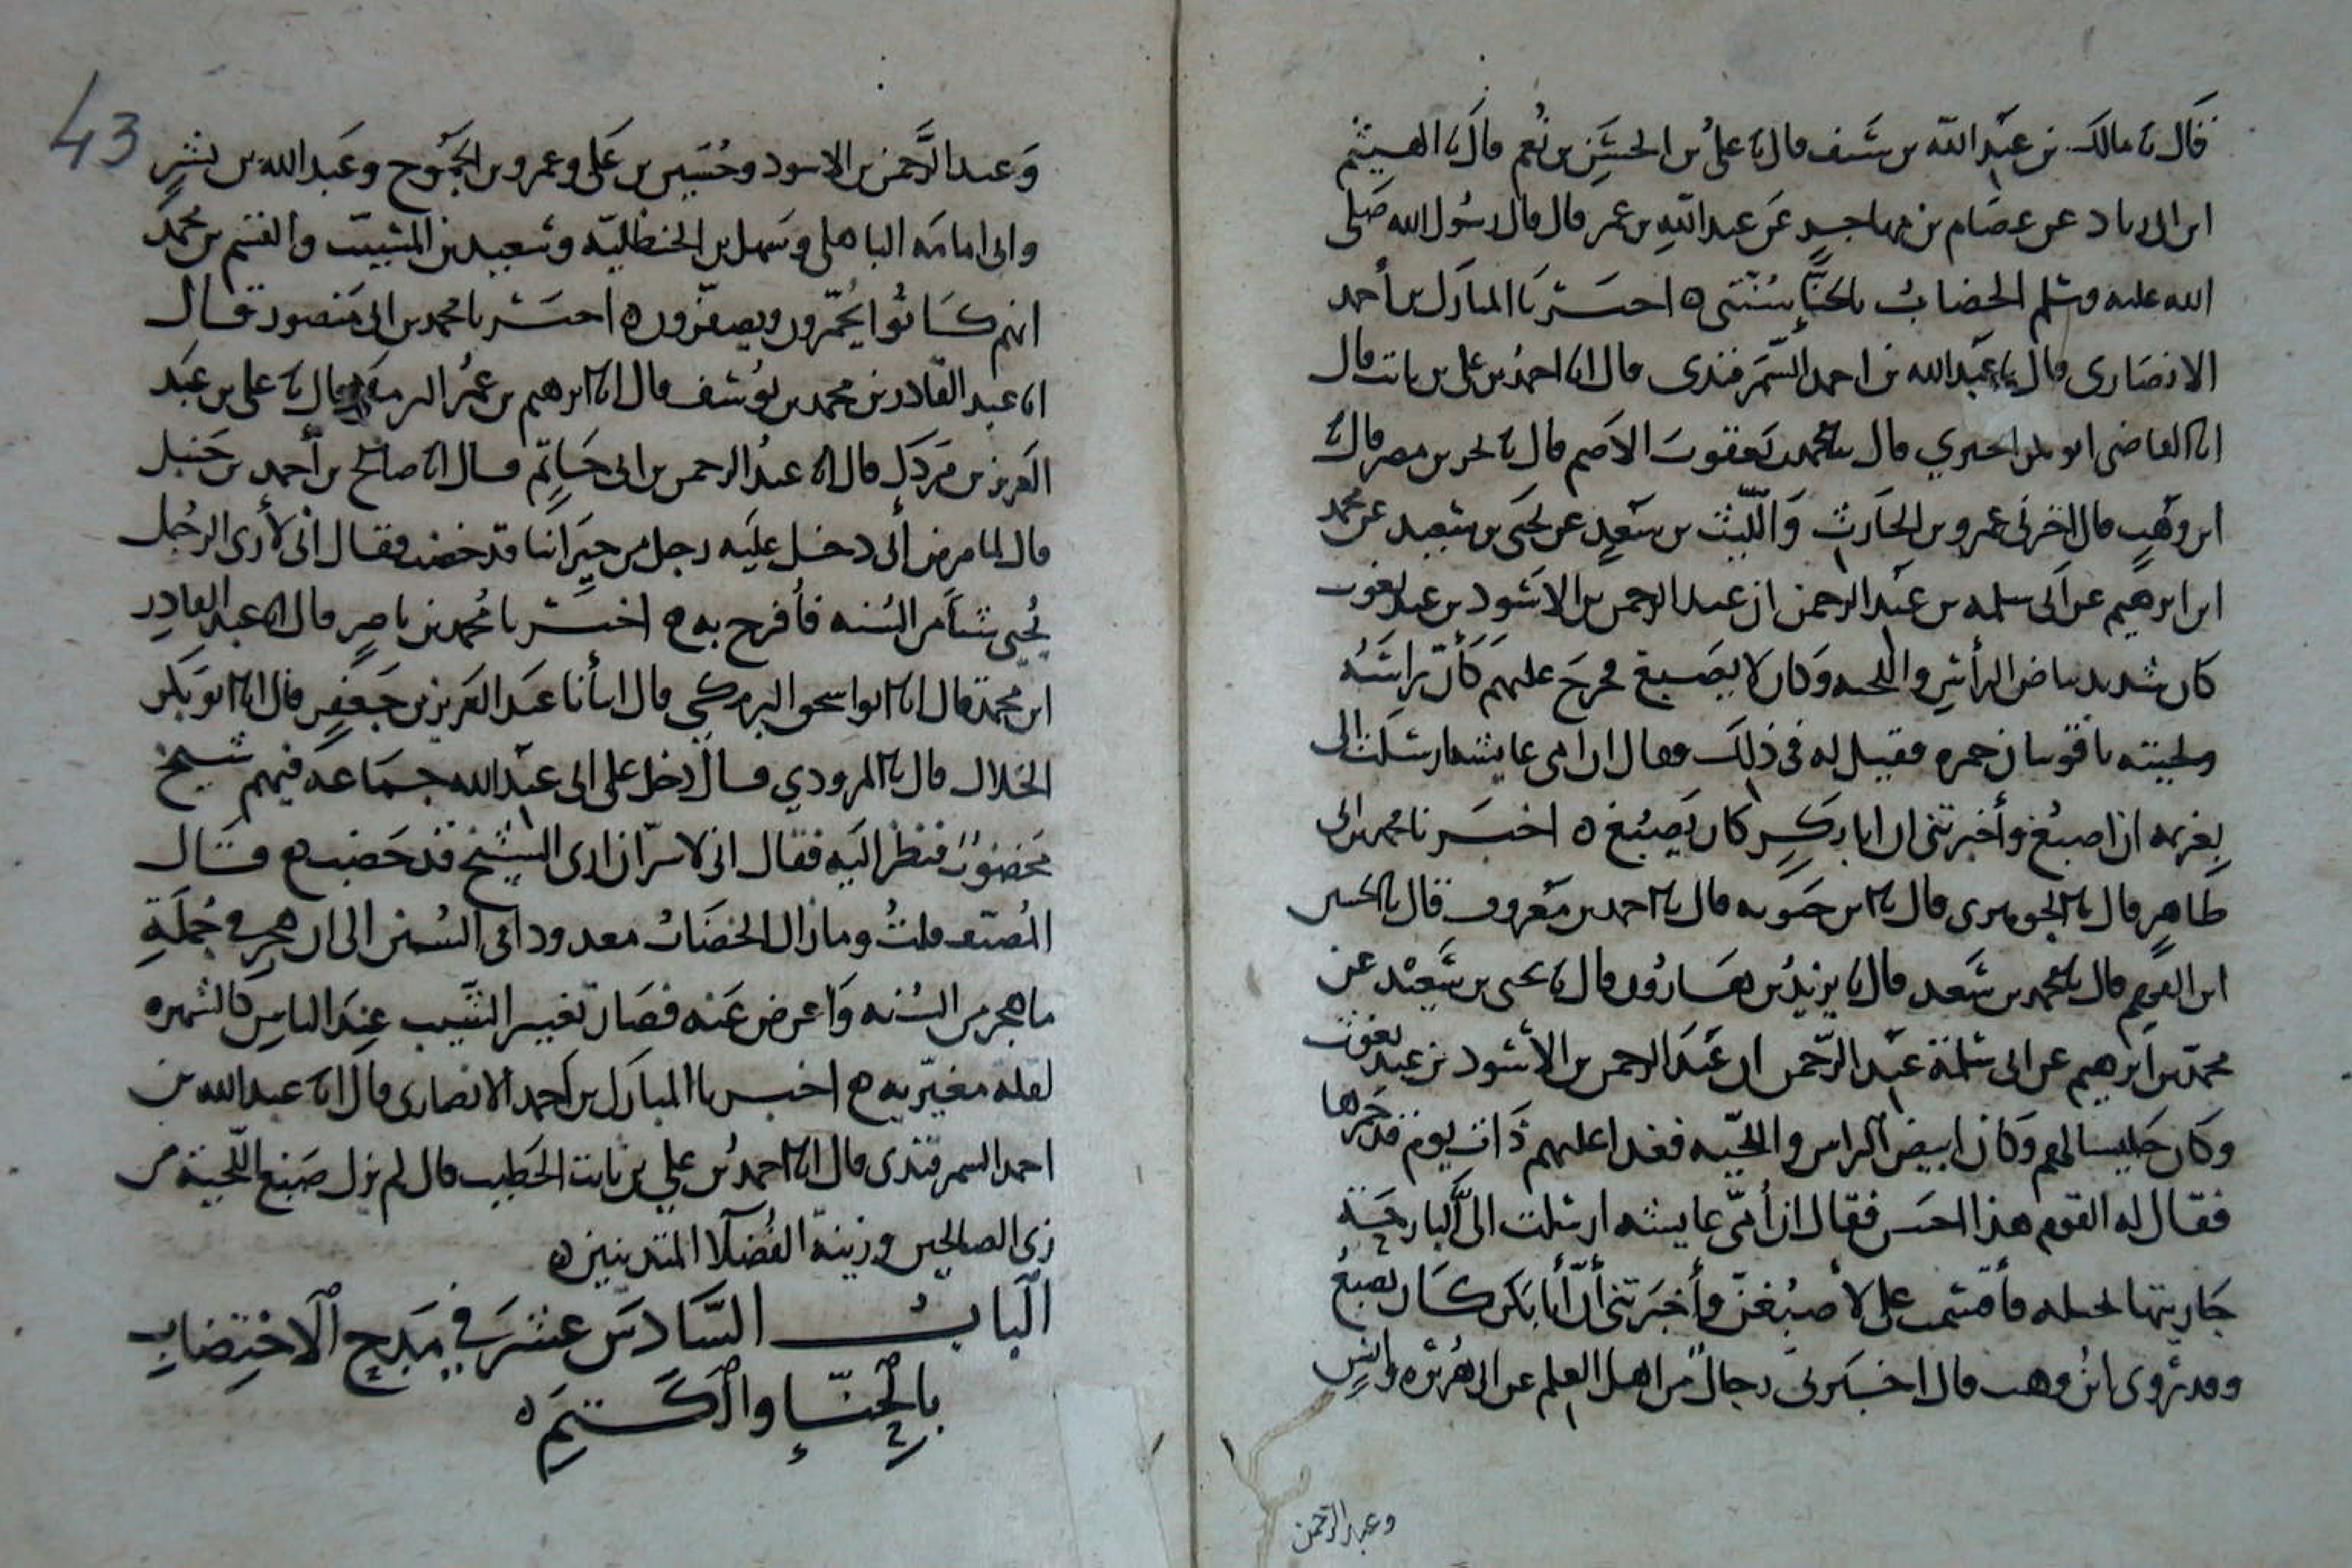 قال نا مالك بن عبد الله بن سيف قال نا علي بن الحسن بن نعيم قال نا الهيثم
ابن ابي زياد عن عصام بن مهاجر عن عبد الله بن عمر قال قال رسول الله صلى
الله عليه وسلم الخضاب بالحناء سنتي ه اخبرنا المبارك بن أحمد
الانصاري قال نا عبد الله بن احمد السمرقندي قال انا احمد بن علي بن ثابت قال
انا القاضي ابو بكر الحيري قال نا محمد بن يعقوب الاصم قال نا بحر بن نصر قال نا
ابن وهب قال اخبرني عمرو بن الحارث وَالليث بن سعد عن يحيى بن سعيد عن محمد
ابن ابرهيم عن ابي سلمه بن عبد الرحمن ان عبد الرحمن بن الاسود بن عبد يغوث
كان شديد بياض الرأس واللحيه وكان لا يصبغ فخرج عليهم كأن راسه
ولحيته ياقوتتان حمره فقيل له في ذلك فقال ان امي عايشه ارسلت الي
بعزيمه ان اصبغ وأخبرتني ان ابا بكر كان يصبغ ه اخبرنا محمد بن ابي
طاهر قال نا الجوهري قال نا ابن حيويه قال نا احمد بن معروف قال نا الحسين
ابن الفهم قال نا محمد بن سعد قال نا يزيد بن هارون قال نا يحيى بن سعيد عن
محمد بن ابرهيم عن ابي سلمة عبد الرحمن ان عبد الرحمن بن الأسود بن عبد يغوث
وكان جليسا لهم وكان ابيض الراس واللحيه فغدا عليهم ذات يوم قد حمرها
فقال له القوم هذا احسن فقال ان أمي عايشه ارسلت الي البارحة
جاريتها نخيله فأقسمت علي لأصبغن وأخبرتني أن أبا بكر كان يصبغ
وقد روى ابن وهب قال اخبرني رجال من اهل العلم عن ابي هريره وانس
وعبد الرحمن
43
وعبد الرحمن بن الاسود وحسين بن علي وعمرو بن الجموح وعبد الله بن بشر
وابي امامه الباهلي وسهل بن الحنظليه وسعيد بن المسيب والقسم بن محمد
انهم كانوا يحمرون ويصفرون ه اخبرنا محمد بن ابي منصور قال
انا عبد القادر بن محمد بن يوسف قال انا ابرهيم بن عمر البرمكي قال نا علي بن عبد
العزيز بن مردك قال نا عبد الرحمن بن ابي حاتم قال نا صالح بن أحمد بن حنبل
قال لما مرض أبي دخل عليه رجل من جيراننا قد خضب فقال اني لأرى الرجل
يحيي شيأ من السنه فأفرح به ه اخبرنا محمد بن ناصر قال انا عبد القادر
ابن محمد قال انا ابو اسحق البرمكي قال انبأنا عبد العزيز بن جعفر قال انا ابو بكر
الخلال قال نا المروذي قال دخل على ابي عبد الله جماعه فيهم شيخ
مخضوب فنظر اليه فقال اني لاسر ان ارى الشيخ قد خضب ه قال
المصنف قلت وما زال الخضاب معدودا في السنن الى ان هجر في جملة
ما هجر من السنه واعرض عنه فصار تغيير الشيب عند الناس كالشهره
لقلة مغيريه ه اخبرنا المبارك بن احمد الانصاري قال انا عبد الله بن
احمد السمرقندي قال انا احمد بن علي بن ثابت الخطيب قال لم يزل صبغ اللحية من
زي الصالحين وزينة الفضلا المتدينين ه
الباب السادس عشر في مدح الاختضاب
بالحناء والكتم ه